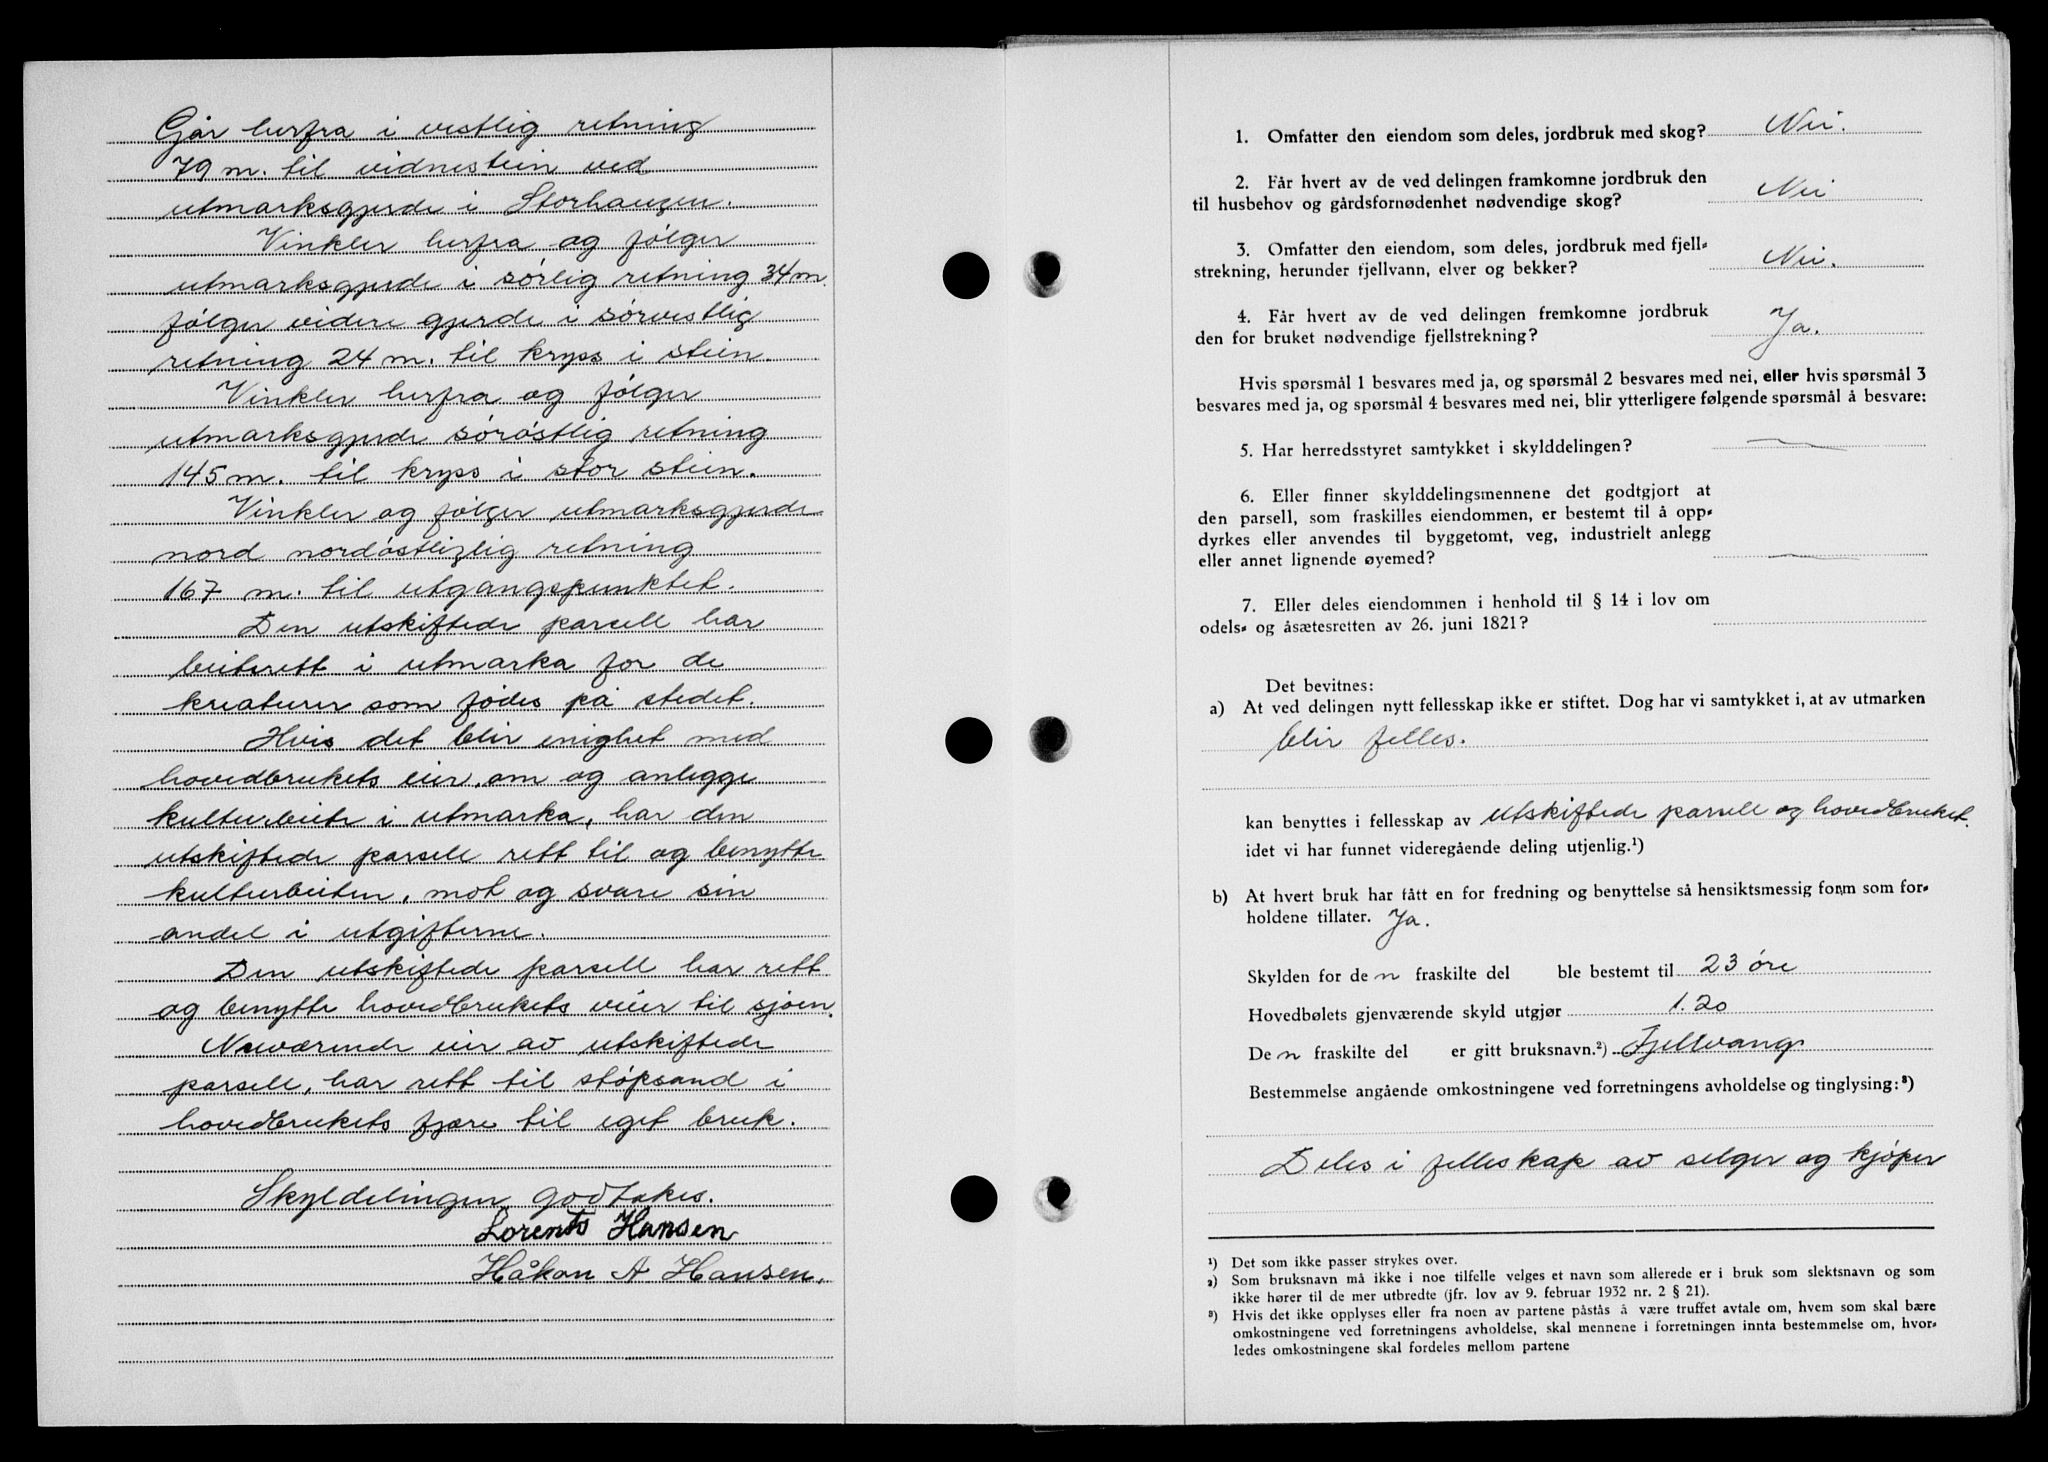 Går herfra i vestlig retning
79 m. til vidnestein ved
utmarksgjerde i Storhaugen.
Vinkler herfra og følger
utmarksgjerde i sørlig retning 34 m.
følger videre gjerde i sørvestlig
retning 24 m. til kryss i stein.
Vinkler herfra og følger
utmarksgjerde sørøstlig retning
145 m. til kryss i stor stein.
Vinkler og følger utmarksgjerde
nord nordøstliglig retning
167 m. til utgangspunktet.
Den utskiftede parsell har
beiterett i utmarka for de
kreaturer som fødes på stedet.
Hvis det blir enighet med
hovedbrukets eier, om og anlegge
kulturbeite i utmarka, har den
utskiftede parsell rett til og benytte
kulturbeiten, mot og svare sin
andel i utgifterne.
Den utskiftede parsell har rett
og benytte hovedbrukets veier til sjøen.
Nuværende eier av utskiftede
parsell, har rett til støpsand i
hovedbrukets fjære til eget bruk.
Skyldelingen godtakes.
Lorents Hansen
Håkon A Hansen.
1. Omfatter den eiendom som deles, jordbruk med skog? Nei.
2. Får hvert av de ved delingen framkomne jordbruk den
til husbehov og gårdsfornødenhet nødvendige skog? Nei
3. Omfatter den eiendom, som deles, jordbruk med fjell-
strekning, herunder fjellvann, elver og bekker? Nei.
4. Får hvert av de ved delingen fremkomne jordbruk
den for bruket nødvendige fjellstrekning? Ja.
Hvis spørsmål 1 besvares med ja, og spørsmål 2 besvares med nei, eller hvis spørsmål 3
besvares med ja, og spørsmål 4 besvares med nei, blir ytterligere følgende spørsmål å besvare:
5. Har herredsstyret samtykket i skylddelingen?
6. Eller finner skylddelingsmennene det godtgjort at
den parsell, som fraskilles eiendommen, er bestemt til å opp-
dyrkes eller anvendes til byggetomt, veg, industrielt anlegg
eller annet lignende øyemed?
7. Eller deles eiendommen i henhold til § 14 i lov om
odels- og åsætesretten av 26. juni 1821?
Det bevitnes:
a) At ved delingen nytt fellesskap ikke er stiftet. Dog har vi samtykket i, at av utmarken
blir felles.
kan benyttes i fellesskap av utskiftede parsell og hovedbruket.
idet vi har funnet videregående deling utjenlig.¹)
b) At hvert bruk har fått en for fredning og benyttelse så hensiktsmessig form som for-
holdene tillater. Ja.
Skylden for de n fraskilte del ble bestemt til 23 øre
Hovedbølets gjenværende skyld utgjør 1.20
De n fraskilte del er gitt bruksnavn.²) Fjellvang
Bestemmelse angående omkostningene ved forretningens avholdelse og tinglysing:³)
Deles i felleskap av selger og kjøper
¹) Det som ikke passer strykes over.
²) Som bruksnavn må ikke i noe tilfelle velges et navn som allerede er i bruk som slektsnavn og som
ikke hører til de mer utbredte (jfr. lov av 9. februar 1932 nr. 2 § 21).
³) Hvis det ikke opplyses eller fra noen av partene påstås å være truffet avtale om, hvem som skal bære
omkostningene ved forretningens avholdelse, skal mennene i forretningen innta bestemmelse om, hvor-
ledes omkostningene skal fordeles mellom partene